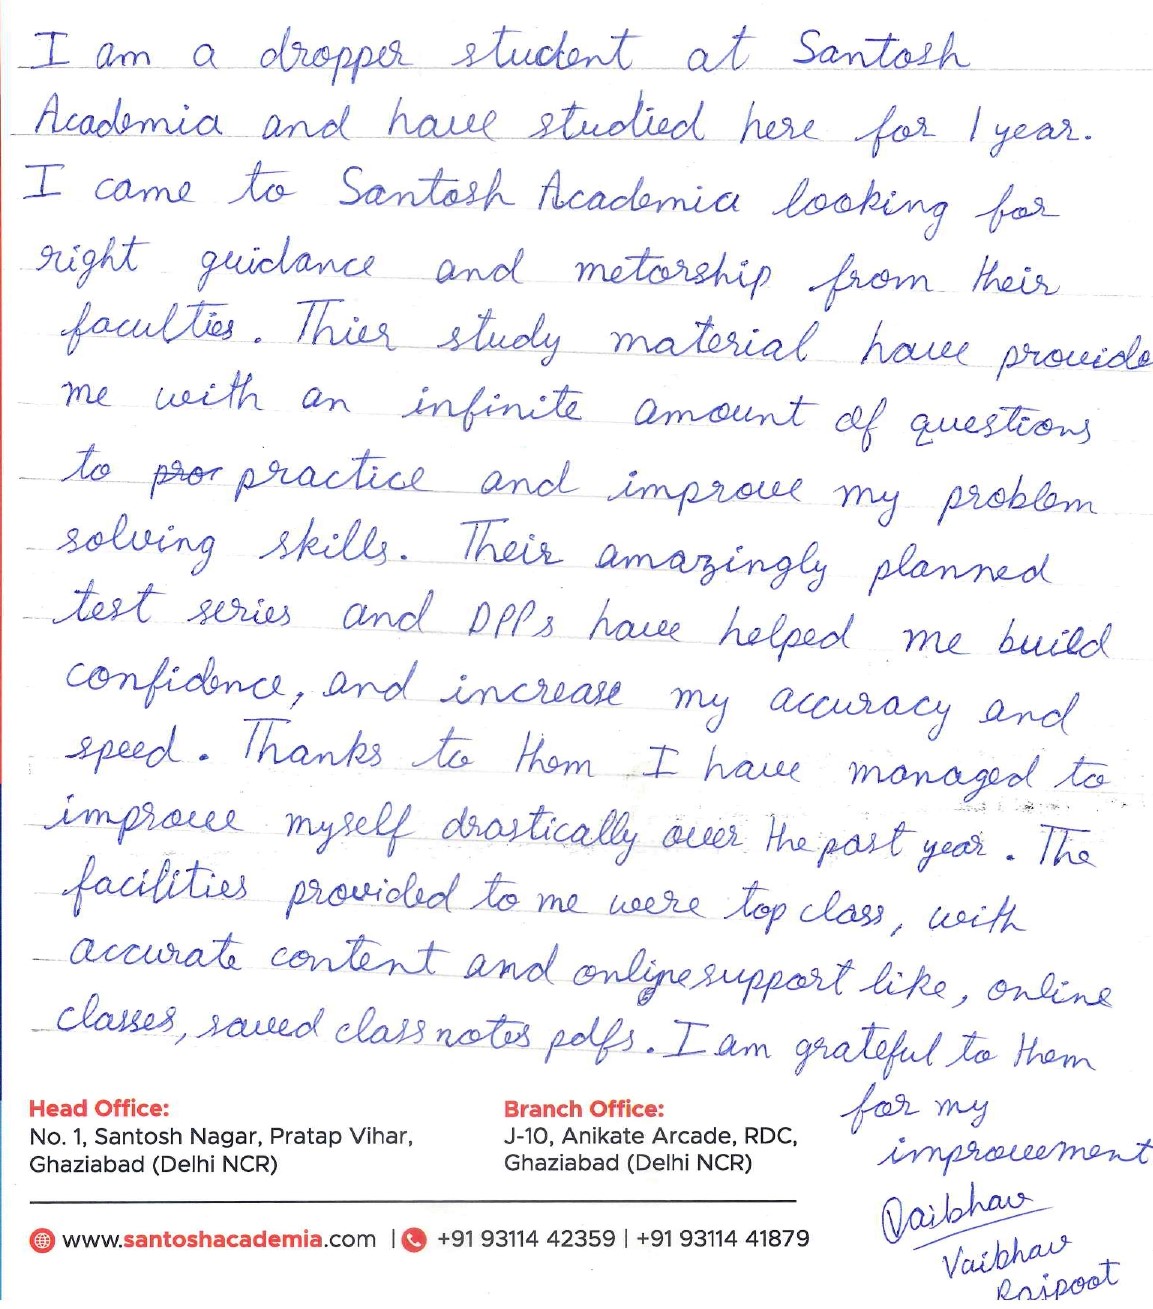 I am a dropper student at Santosh
Academia and have studied here for 1 year.
I came to Santosh Academia looking for
right guidance and metorship from their
faculties. Thier study material have provide
me with an infinite amount of questions
to pror practice and improve my problem
solving skills. Their amazingly planned
test series and DPPs have helped me build
confidence, and increase my accuracy and
speed. Thanks to them I have managed to
improve myself drastically over the past year. The
facilities provided to me were top class, with
accurate content and online support like, online
classes, saved class notes pdfs. I am grateful to them
for my
improvement
Vaibhav
Vaibhav
Rajpoot
Head Office:
No. 1, Santosh Nagar, Pratap Vihar,
Ghaziabad (Delhi NCR)
Branch Office:
J-10, Anikate Arcade, RDC,
Ghaziabad (Delhi NCR)
www.santoshacademia.com | +91 93114 42359 | +91 93114 41879